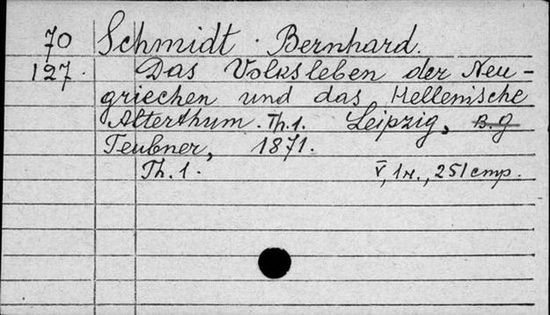 70 Schmidt . Bernhard.
127. Das Volksleben der Neu-
griechen und das Hellenische
Alterthum. Th. 1. Leipzig, B. G
Teubner, 1871.
Th. 1. V, 1 н., 251 стр.